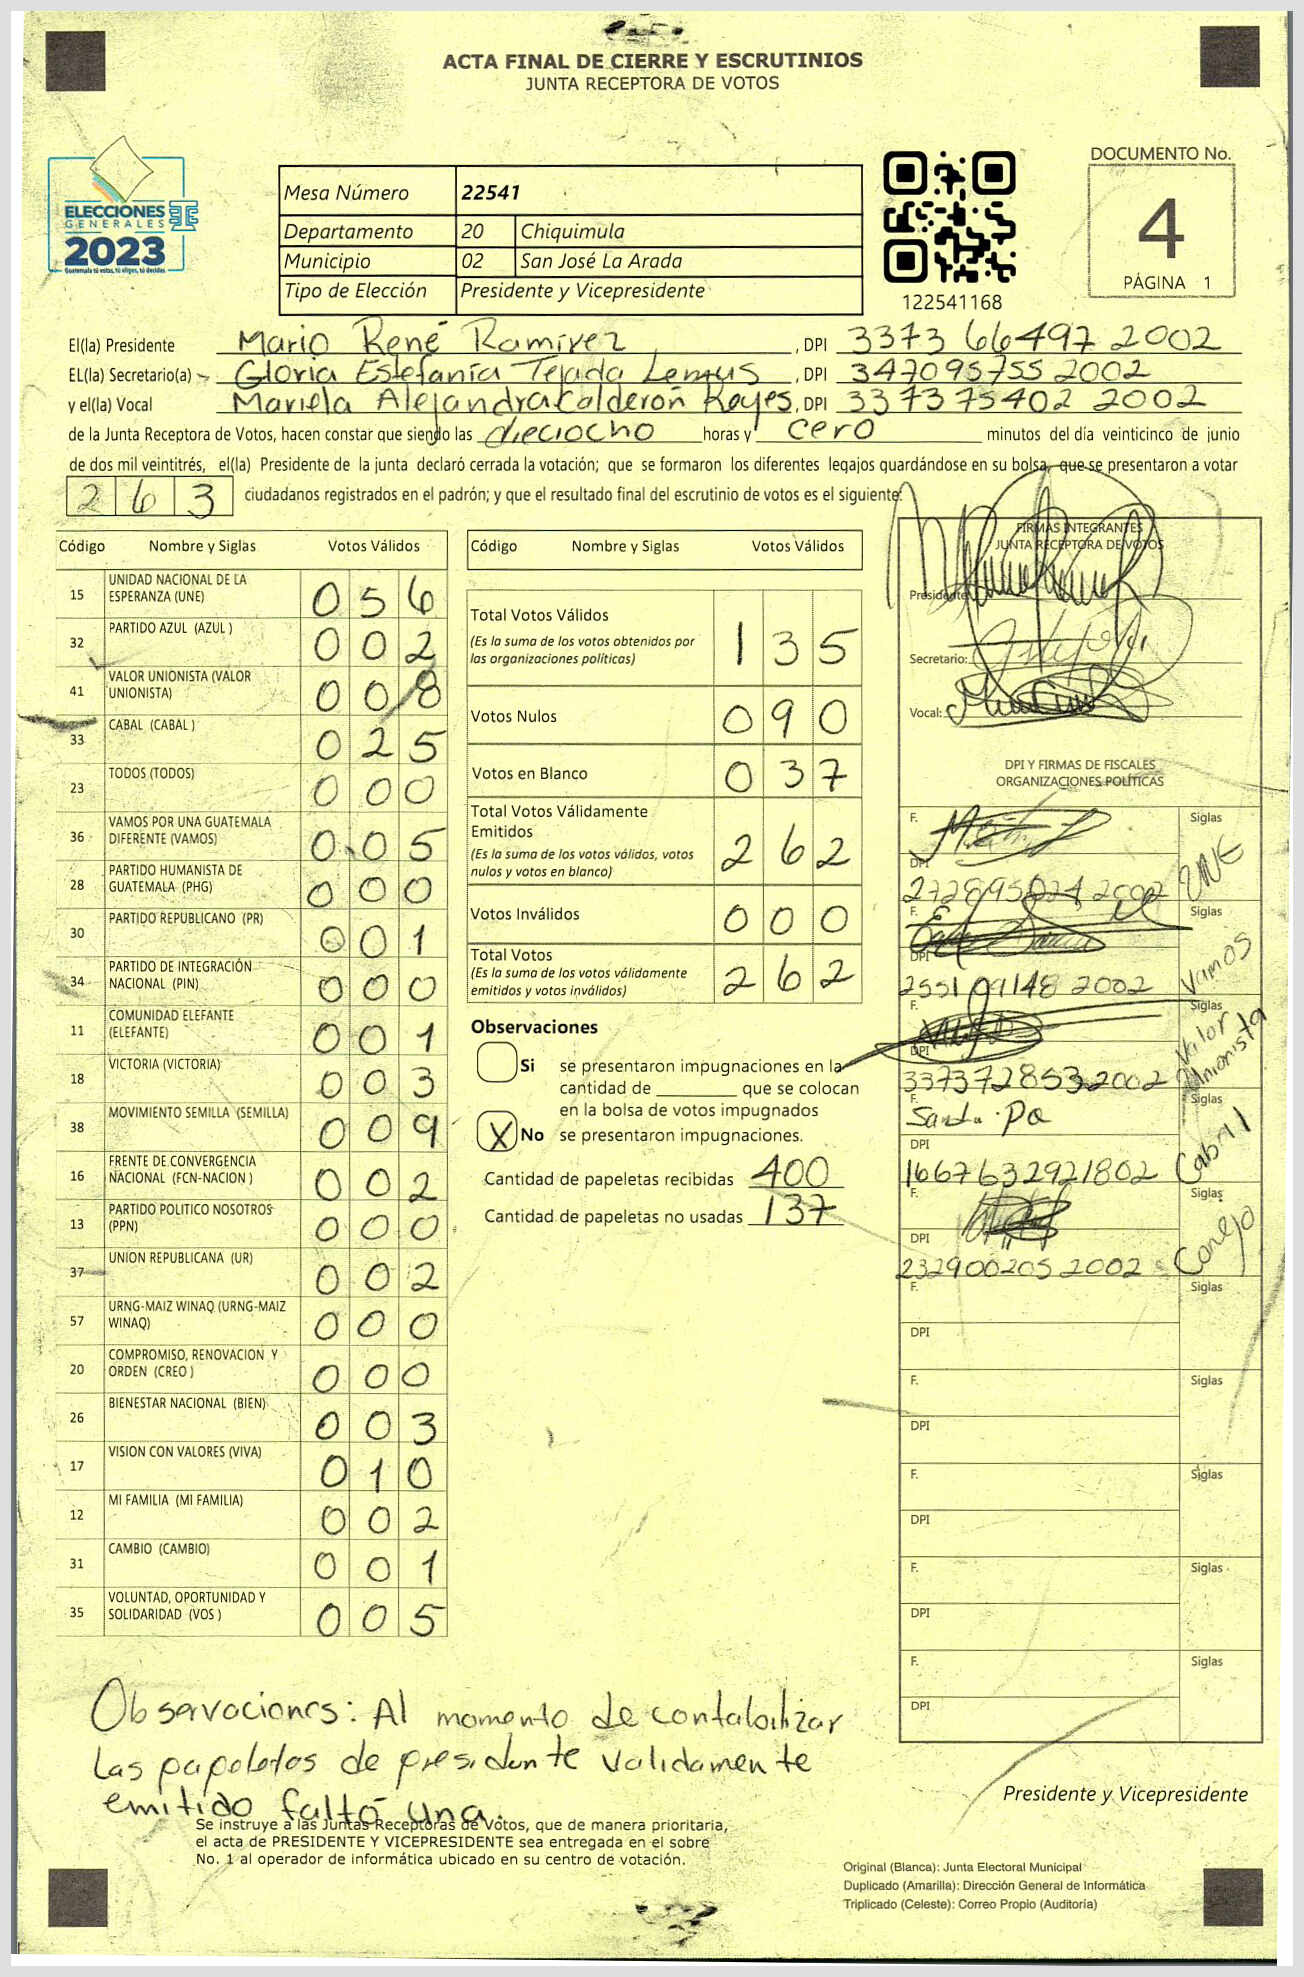 ACTA FINAL DE CIERRE Y ESCRUTINIOS
JUNTA RECEPTORA DE VOTOS
ELECCIONES
GENERALES
2023
Guatemala tú votas, tú eliges, tú decides
Mesa Número 22541
Departamento 20 Chiquimula
Municipio 02 San José La Arada
Tipo de Elección Presidente y Vicepresidente
122541168
DOCUMENTO No.
4
PÁGINA 1
El(la) Presidente Mario René Ramírez, DPI 3373 66497 2002
EL(la) Secretario(a) Gloria Estefanía Tejada Lemus, DPI 347095755 2002
y el(la) Vocal Mariela Alejandra Calderón Reyes, DPI 337375402 2002
de la Junta Receptora de Votos, hacen constar que siendo las dieciocho horas y cero minutos del día veinticinco de junio
de dos mil veintitrés, el(la) Presidente de la junta declaró cerrada la votación; que se formaron los diferentes legajos guardándose en su bolsa, que se presentaron a votar
263 ciudadanos registrados en el padrón; y que el resultado final del escrutinio de votos es el siguiente:
Código Nombre y Siglas Votos Válidos
15 UNIDAD NACIONAL DE LA ESPERANZA (UNE) 056
32 PARTIDO AZUL (AZUL ) 002
41 VALOR UNIONISTA (VALOR UNIONISTA) 008
33 CABAL (CABAL ) 025
23 TODOS (TODOS) 000
36 VAMOS POR UNA GUATEMALA DIFERENTE (VAMOS) 005
28 PARTIDO HUMANISTA DE GUATEMALA (PHG) 000
30 PARTIDO REPUBLICANO (PR) 001
34 PARTIDO DE INTEGRACIÓN NACIONAL (PIN) 000
11 COMUNIDAD ELEFANTE (ELEFANTE) 001
18 VICTORIA (VICTORIA) 003
38 MOVIMIENTO SEMILLA (SEMILLA) 009
16 FRENTE DE CONVERGENCIA NACIONAL (FCN-NACION ) 002
13 PARTIDO POLITICO NOSOTROS (PPN) 000
37 UNION REPUBLICANA (UR) 002
57 URNG-MAIZ WINAQ (URNG-MAIZ WINAQ) 000
20 COMPROMISO, RENOVACION Y ORDEN (CREO ) 000
26 BIENESTAR NACIONAL (BIEN) 003
17 VISION CON VALORES (VIVA) 010
12 MI FAMILIA (MI FAMILIA) 002
31 CAMBIO (CAMBIO) 001
35 VOLUNTAD, OPORTUNIDAD Y SOLIDARIDAD (VOS ) 005
Código Nombre y Siglas Votos Válidos
Total Votos Válidos 135
(Es la suma de los votos obtenidos por
las organizaciones políticas)
Votos Nulos 090
Votos en Blanco 037
Total Votos Válidamente
Emitidos 262
(Es la suma de los votos válidos, votos
nulos y votos en blanco)
Votos Inválidos 000
Total Votos 262
(Es la suma de los votos válidamente
emitidos y votos inválidos)
Observaciones
Si se presentaron impugnaciones en la
cantidad de ________ que se colocan
en la bolsa de votos impugnados
X No se presentaron impugnaciones.
Cantidad de papeletas recibidas 400
Cantidad de papeletas no usadas 137
FIRMAS INTEGRANTES
JUNTA RECEPTORA DE VOTOS
Presidente:
Secretario:
Vocal:
DPI Y FIRMAS DE FISCALES
ORGANIZACIONES POLÍTICAS
F. Siglas UNE
DPI 2002
F. Siglas Vamos
DPI 2551 09148 2002
F. Siglas Valor Unionista
DPI 337372853 2002
F. Siglas
DPI 1667632921802
F. Siglas
DPI 232900205 2002
F. Siglas
DPI
F. Siglas
DPI
F. Siglas
DPI
F. Siglas
DPI
F. Siglas
DPI
Observaciones: Al momento de contabilizar
las papeletas de presidente validamente
emitido faltó una.
Se instruye a las Juntas Receptoras de Votos, que de manera prioritaria,
el acta de PRESIDENTE Y VICEPRESIDENTE sea entregada en el sobre
No. 1 al operador de informática ubicado en su centro de votación.
Presidente y Vicepresidente
Original (Blanca): Junta Electoral Municipal
Duplicado (Amarilla): Dirección General de Informática
Triplicado (Celeste): Correo Propio (Auditoría)